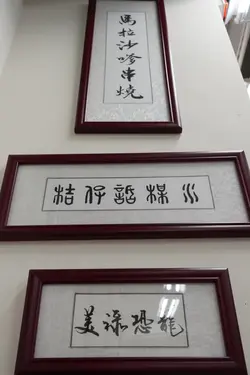 馬拉沙嗲串燒
桔仔話楳水
美祿恐龍